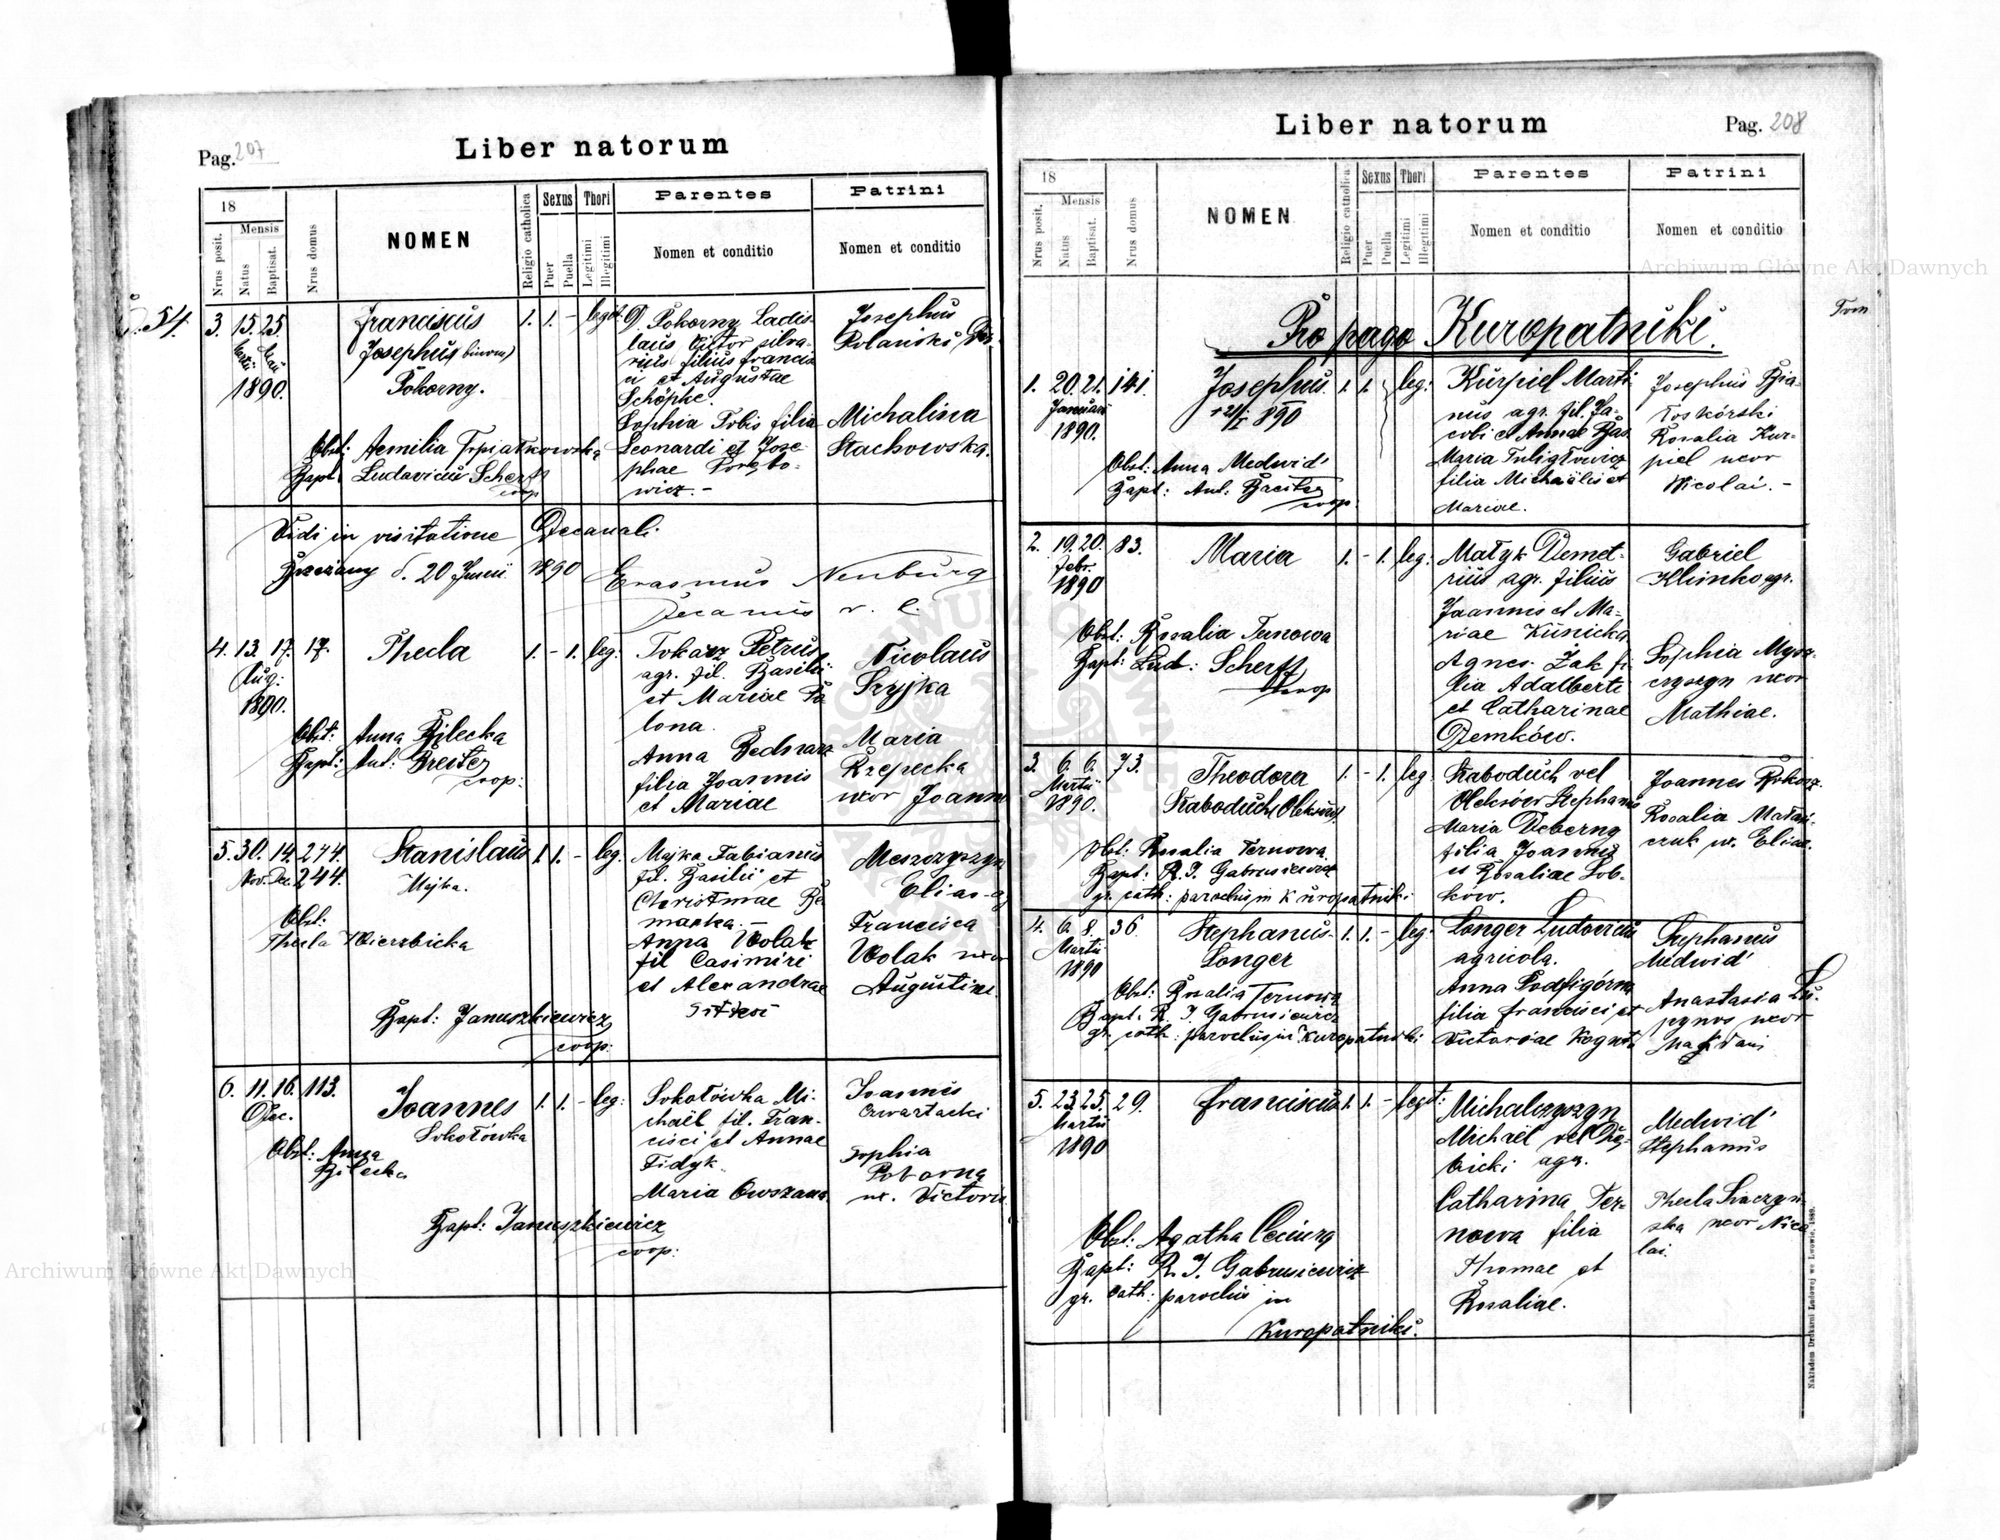 Pag. 207
Liber natorum
18
Mensis
Nrus posit.
Natus
Baptisat.
Nrus domus
NOMEN
Religio catholica
Sexus
Puer
Puella
Thori
Legitimi
Illegitimi
Parentes
Nomen et conditio
Patrini
Nomen et conditio
54.
3. 15. 25
1890.
Franciscus
Josephus (binom)
Pokorny.
1. 1. -
Pokorny Ladis
laus Victor silva-
rius filius Francis
ci et Augustae
Schöpke.
Sophia Tobis filia
Leonardi et Jose
phae
wicz. -
Josephus
Polański
Michalina
Stachowska.
Obst: Aemilia
Bapt: Ludovicus Scherff
coop
Vidi in visitatione Decanali.
Brzeżany d. 20 Junii 1890
Erasmus Neuburg
Decanus r. l.
4. 13. 17. 17.
Aug:
1890.
Thecla
1. - 1. leg:
Tokarz Petrus
agr. fil. Basilii
et Mariae
lona.
Anna Bednarz
filia Joannis
et Mariae
Nicolaus
Szyjka
Maria
Rzepecka
uxor Joann
Obst: Anna Bilecka
Bapt: Ant: Breiter
coop:
5. 30. 14. 244.
Nov. Dec. 244.
Stanislaus
Majka.
1. 1. - leg.
Majka Fabianus
fil. Basilii et
Christinae
manka. -
Anna Wolak
fil Casimiri
et Alexandrae
Sitkoi
Meszczyszyn
Elias
Francisca
Wolak uxor
Augustini.
Obst:
Thecla Wierzbicka
Bapt: Januszkiewicz
coop:
6. 11. 16. 113.
Dec.
Joannes
Sokołówka
1. 1. - leg:
Sokołówka Mi-
chaël fil. Fran-
cisci et Annae
Fidyk.
Maria Owszana
Joannes
Czwartacki
Sophia
Poborna
ux. Victoris
Obst: Anna
Bilecka
Bapt: Januszkiewicz
coop:
Liber natorum
Pag. 208
18
Mensis
Nrus posit.
Natus
Baptisat.
Nrus domus
NOMEN
Religio catholica
Sexus
Puer
Puella
Thori
Legitimi
Illegitimi
Parentes
Nomen et conditio
Patrini
Nomen et conditio
Pro pago Kuropatniki.
1. 20. 21. 141.
Januarii
1890.
Josephus.
1. 1. leg:
Kurpiel Marti
nus agr. fil. Ja-
cobi et Annae Bas
Maria Tuligłowicz
filia Michaëlis et
Mariae.
Josephus Bia-
łoskórski
Rosalia Kur-
piel uxor
Nicolai. -
Obst: Anna Medwid'
Bapt: Ant: Breiter
coop.
2. 19. 20. 83.
Febr.
1890
Maria
1. - 1. leg:
Matyk Demet-
rius agr. filius
Joannis et Ma-
riae Kunicka
Agnes Żak fi-
lia Adalberti
et Catharinae
Demków.
Gabriel
Klimko agr.
Sophia Mysz-
czyszyn uxor
Mathiae.
Obst: Rosalia Ternowa
Bapt: Lud: Scherff
coop
3. 6. 6. 73.
Martii
1890.
Theodora
Staboduch (Oleksów)
1. - 1. leg
Staboduch vel
Oleksów Stephanus
Maria Deberny
filia Joannis
et Rosaliae Sob-
ków.
Joannes
Rosalia
czuk ux. Eliae.
Obst: Rosalia Ternowa.
Bapt: R. J. Gabrusiewicz
gr. cath: parochus in Kuropatniki
4. 6. 8. 36
Martii
1890
Stephanus
Longer
1. 1. - leg:
Longer Ludovicus
agricola.
Anna Podfigórna
filia Francisci et
Victoriae
Stephanus
Medwid'
Anastasia
uxor
Obst: Rosalia Ternowa
Bapt. R. J. Gabrusiewicz
gr. cath: parochus in Kuropatniki
5. 23. 25. 29.
Martii
1890
Franciscus
1. 1. - legit:
Michalczyszyn
Michaël vel
bicki agr.
Catharina Ter-
nowa filia
Thomae et
Rosaliae.
Medwid'
Stephanus
Thecla
ska uxor Nico
lai.
Obst: Agatha Ceciurg
Bapt: R. J. Gabrusiewicz
gr. cath: parochus in
Kuropatniki.
Nakładem Drukarni Ludowej we Lwowie. 1889.
Archiwum Główne Akt Dawnych
Archiwum Główne Akt Dawnych